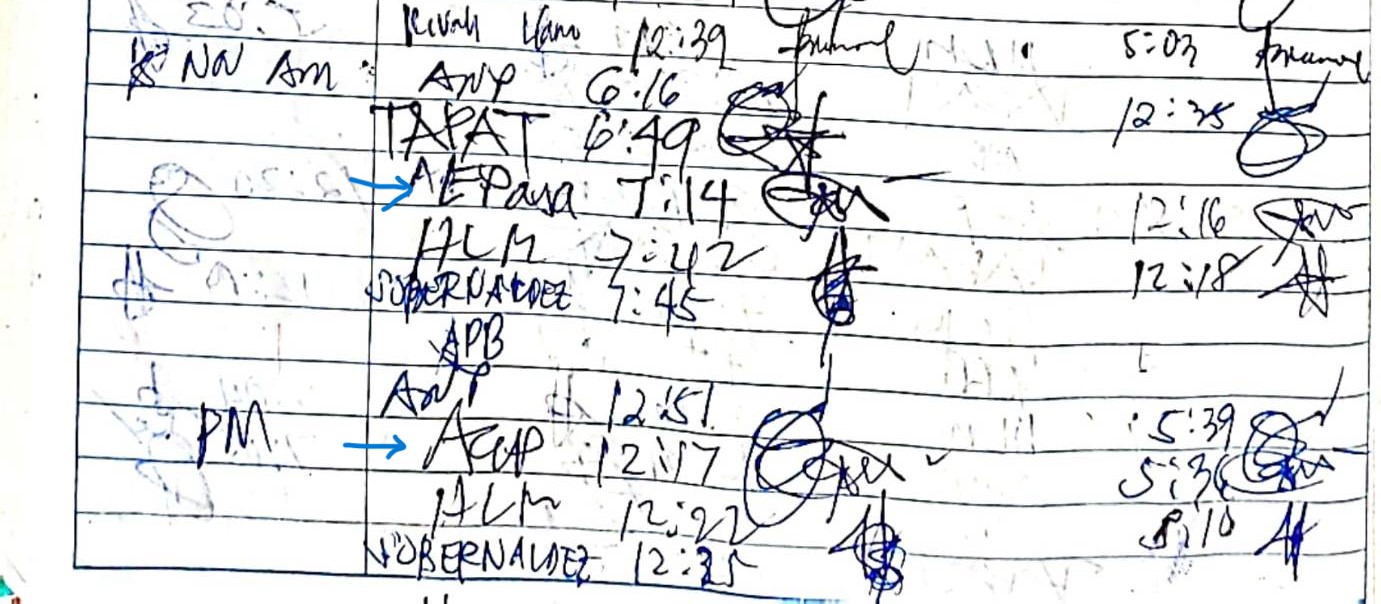 12:39 5:03
NOV AM ANP 6:16 12:35
TAPAT 6:49
AEPava 7:14 12:16
ALM 7:42 12:18
SOBERNALDEZ 7:45
APB
PM ANP 12:51 5:39
12:17 5:36
ALM 12:22 5:10
SOBERNALDEZ 12:35